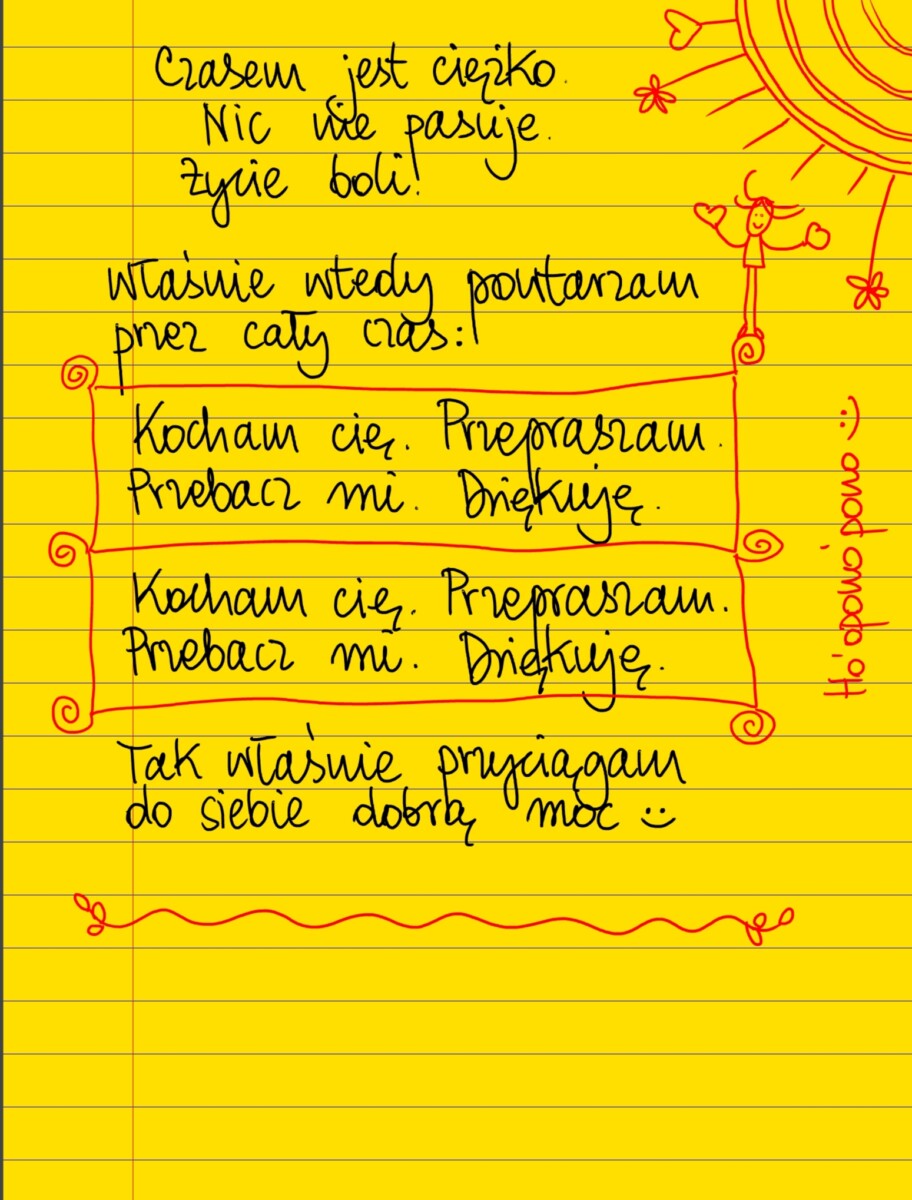 Czasem jest ciężko.
Nic nie pasuje.
Życie boli!
Właśnie wtedy powtarzam
przez cały czas:
Kocham cię. Przepraszam.
Przebacz mi. Dziękuję.
Kocham cię. Przepraszam.
Przebacz mi. Dziękuję.
Tak właśnie przyciągam
do siebie dobrą moc :)
Ho'opono'pono :)